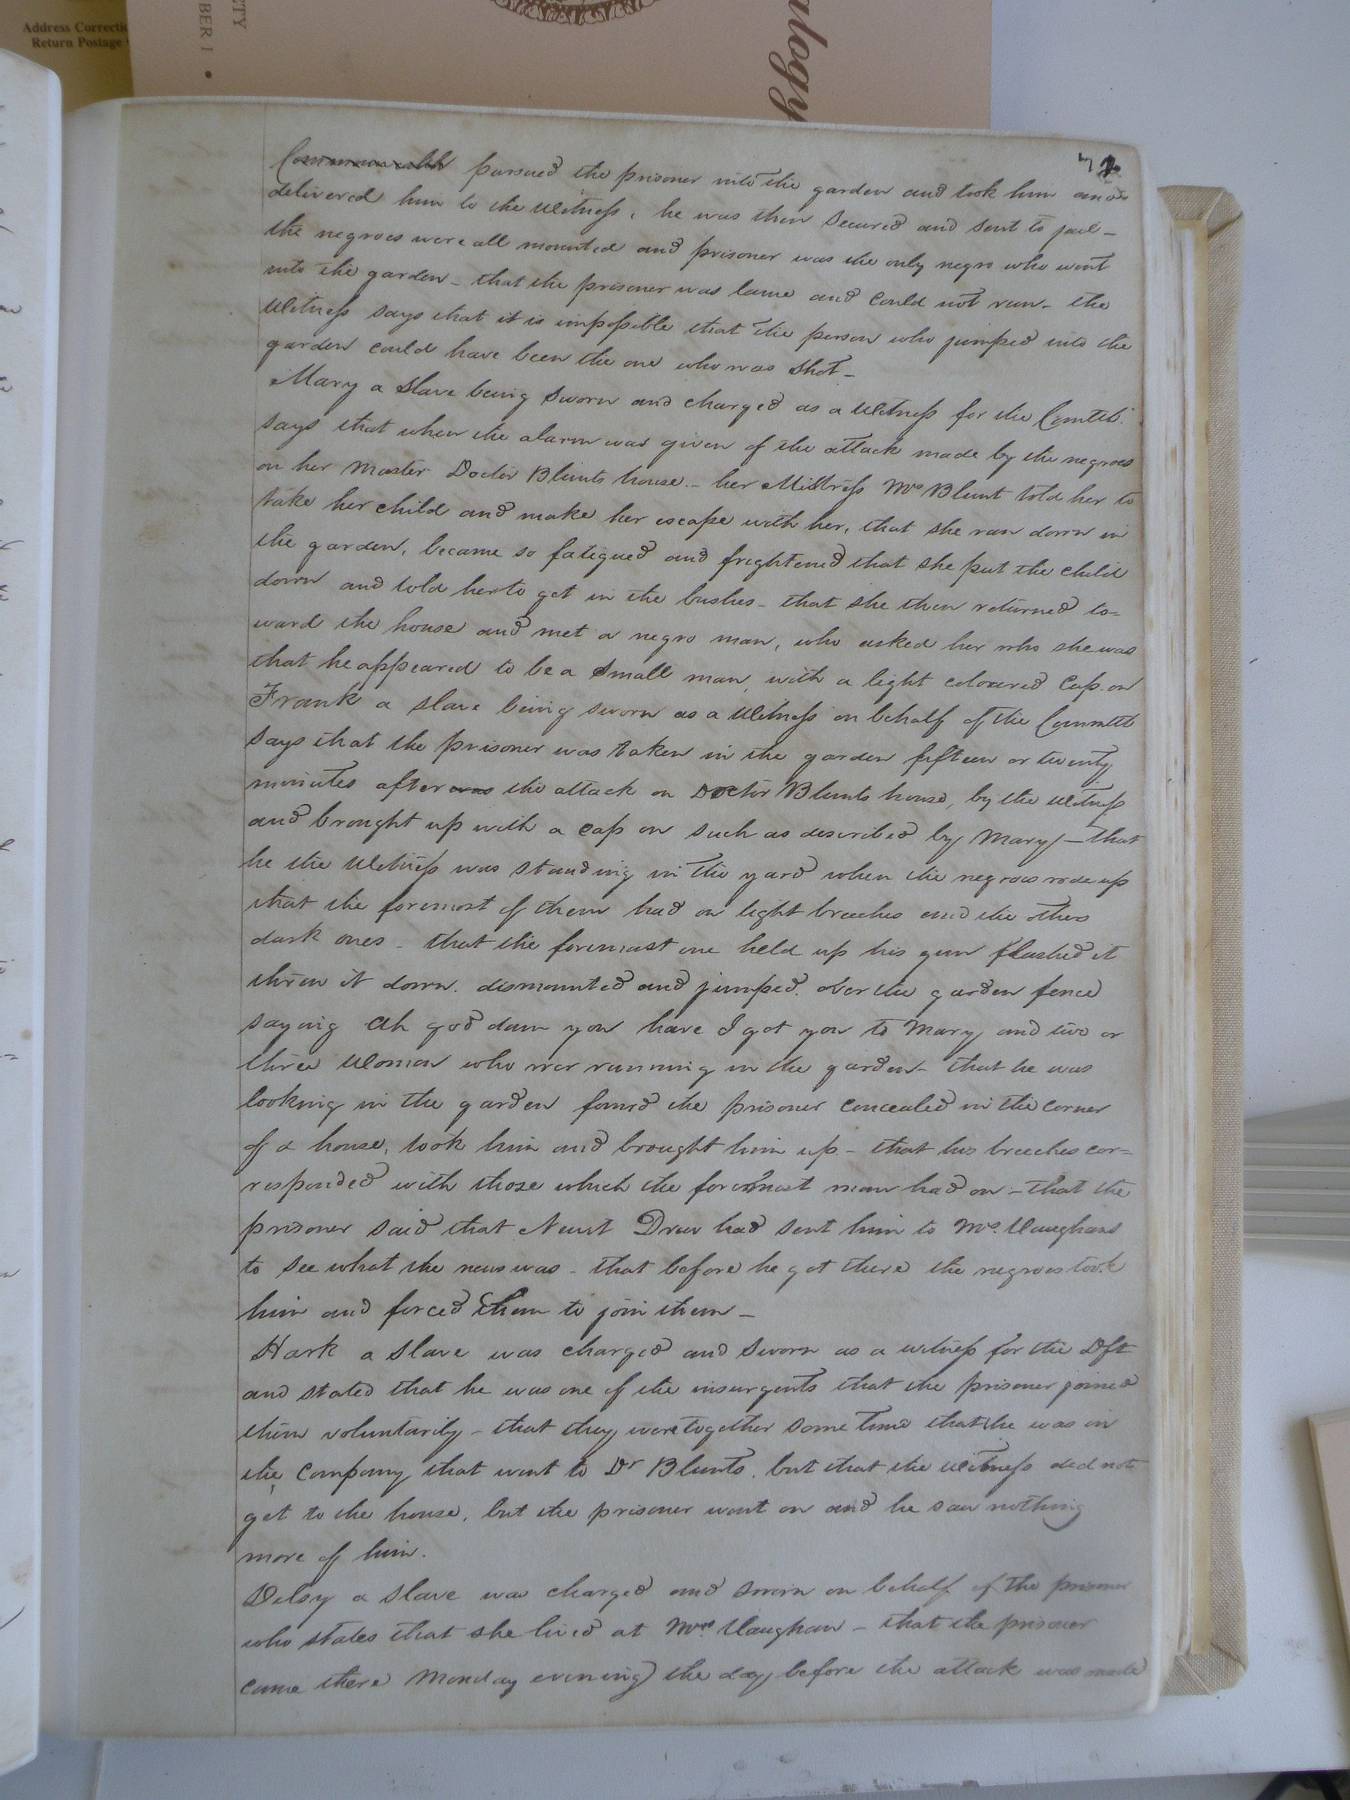 Address Correcti
Return Postage
TY
BER 1 •
alogy
72
Commonwealth pursued the prisoner into the garden and took him and
delivered him to the Witness, he was then secured and sent to jail –
the negroes were all mounted and prisoner was the only negro who went
into the garden – that the prisoner was lame and could not run – the
Witness says that it is impossible that the person who jumped into the
garden could have been the one who was shot –
Mary a slave being sworn and charged as a Witness for the Comtth.
says that when the alarm was given of the attack made by the negroes
on her Master Doctor Blunts house. – her Mistress Mrs Blunt told her to
take her child and make her escape with her, that she ran down in
the garden, became so fatigued and frightened that she put the child
down and told her to get in the bushes – that she then returned to=
ward the house and met a negro man, who asked her who she was
that he appeared to be a small man, with a light coloured Cap on
Frank a slave being sworn as a Witness on behalf of the Commth
says that the prisoner was taken in the garden fifteen or twenty
minutes after was the attack on Doctor Blunts house, by the Witness
and brought up with a cap on such as described by Mary – that
he the Witness was standing in the yard when the negroes rode up
that the foremost of them had on light breeches and the others
dark ones – that the foremast one held up his gun flashed it
threw it down. dismounted and jumped over the garden fence
saying Ah god dam you have I got you to Mary and two or
three Women who wer running in the garden – that he was
looking in the garden found the prisoner concealed in the corner
of a house, took him and brought him up – that his breeches cor=
responded with those which the foremost man had on – that the
prisoner said that Newit Drew had sent him to Mrs. Vaughans
to see what the news was – that before he got there the negroes took
him and forced them to join them –
Hark a slave was charged and sworn as a witness for the Dft
and stated that he was one of the insurgents that the prisoner joined
them voluntarily – that they were together some time that he was in
the Company that went to Dr Blunts, but that the Witness did not
get to the house, but the prisoner went on and he saw nothing
more of him.
Delsy a slave was charged and sworn on behalf of the prisoner
who states that she lived at Mrs. Vaughan – that the prisoner
came there Monday evening the day before the attack was made